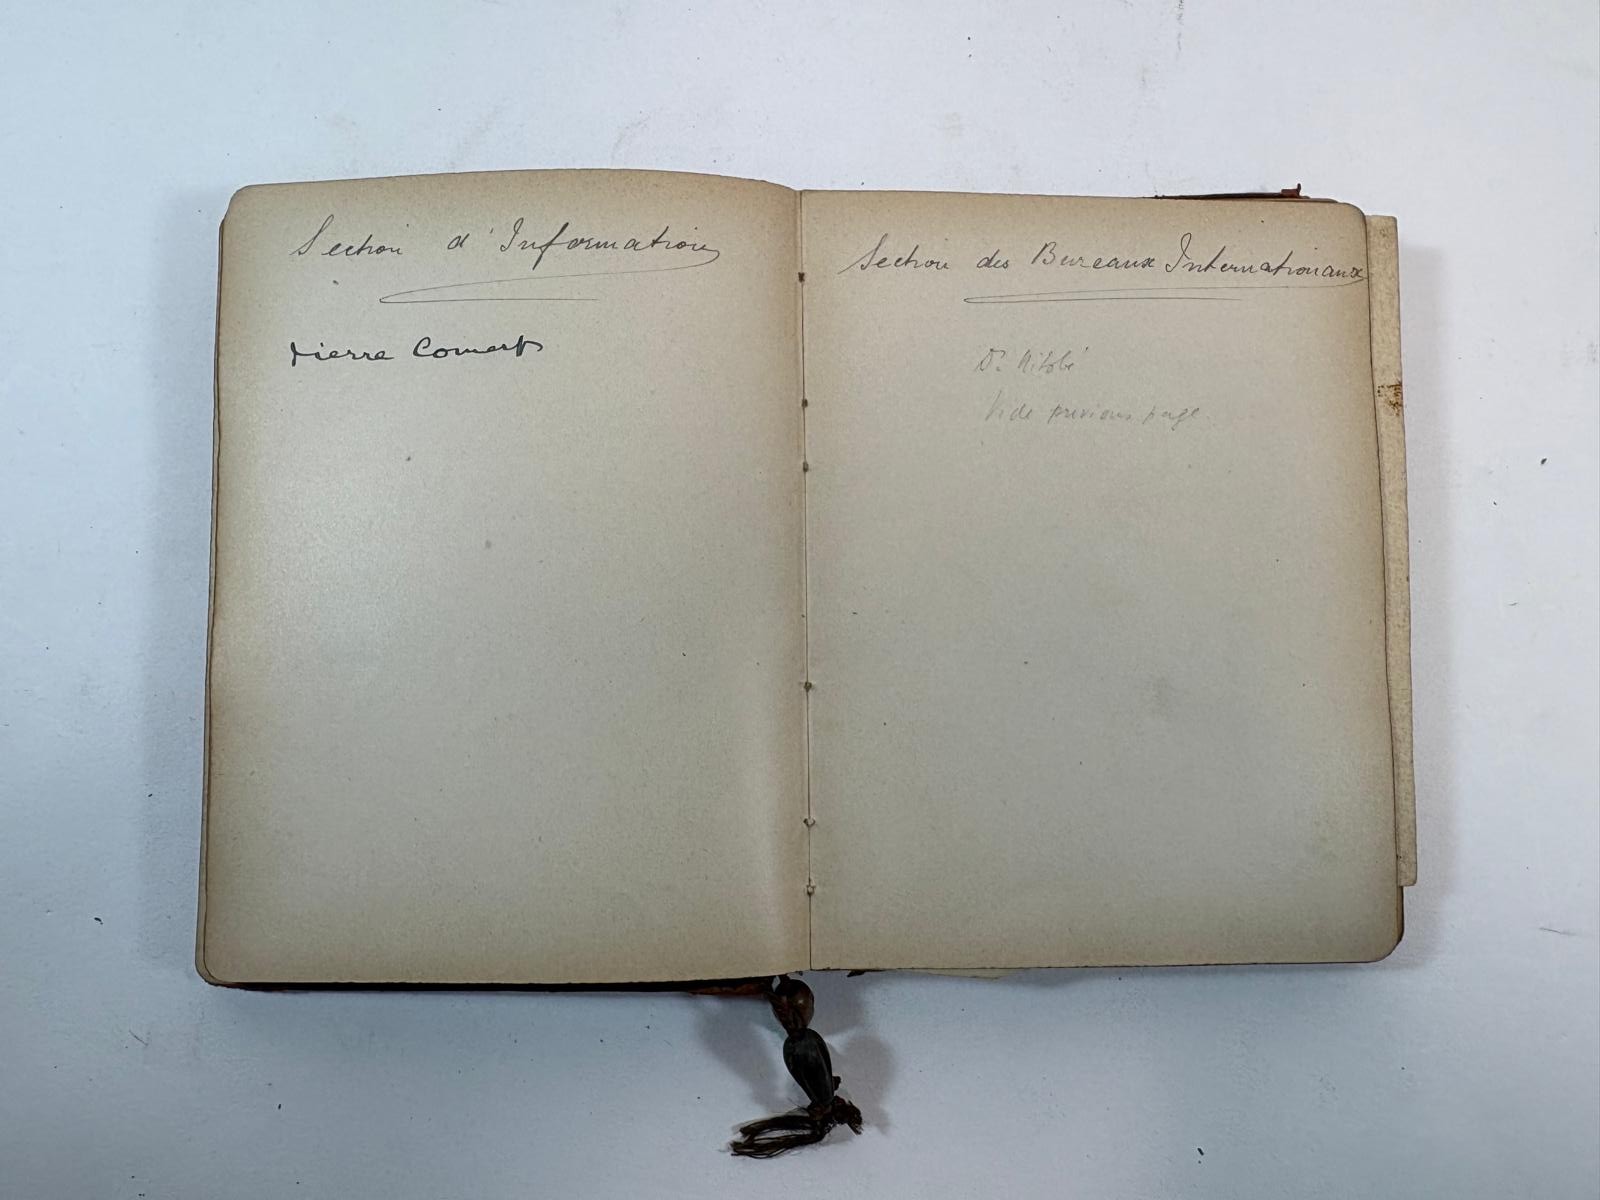 Section d'Information
Pierre Comert
Section des Bureaux Internationaux
Dr. Nitobé
Vide previous page.